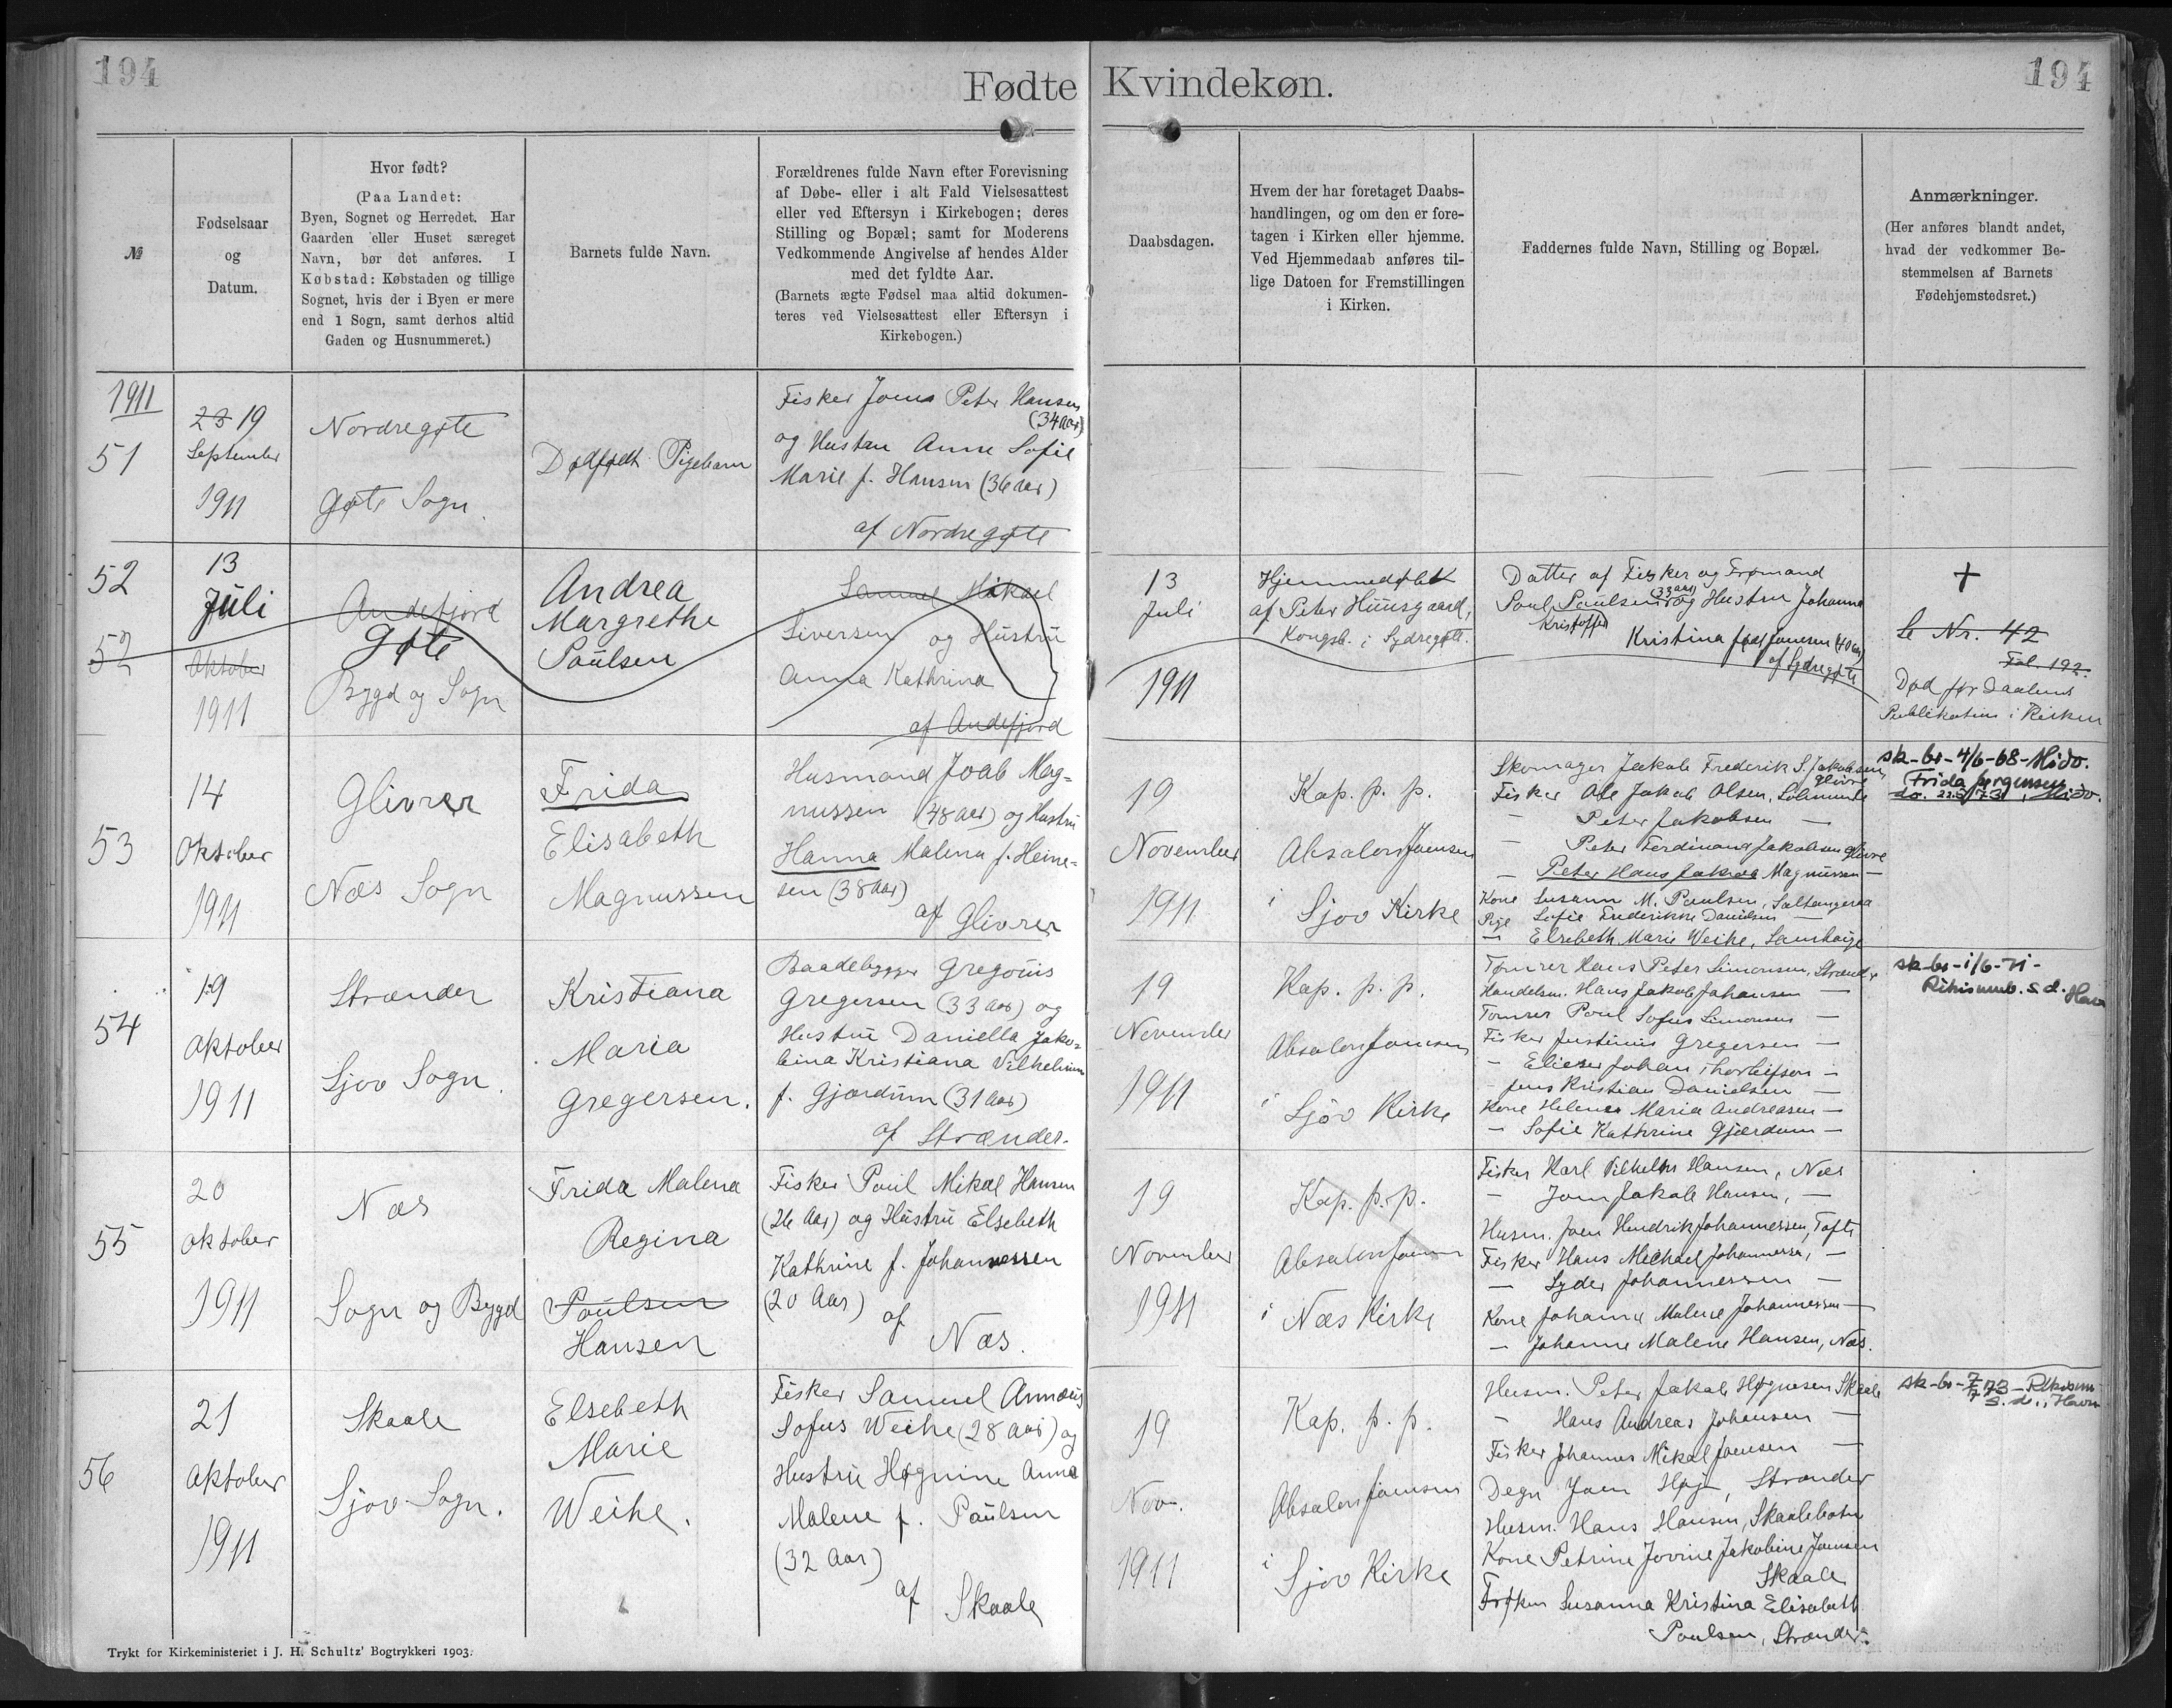 194
Fødte Kvindekøn.
194
№
Fødselsaar
og
Datum.
Hvor født?
(Paa Landet:
Byen, Sognet og Herredet. Har
Gaarden eller Huset særeget
Navn, bør det anføres. I
Købstad: Købstaden og tillige
Sognet, hvis der i Byen er mere
end 1 Sogn, samt derhos altid
Gaden og Husnummeret.)
Barnets fulde Navn.
Forældrenes fulde Navn efter Forevisning
af Døbe- eller i alt Fald Vielsesattest
eller ved Eftersyn i Kirkebogen; deres
Stilling og Bopæl; samt for Moderens
Vedkommende Angivelse af hendes Alder
med det fyldte Aar.
(Barnets ægte Fødsel maa altid dokumen-
teres ved Vielsesattest eller Eftersyn i
Kirkebogen.)
Daabsdagen.
Hvem der har foretaget Daabs-
handlingen, og om den er fore-
tagen i Kirken eller hjemme.
Ved Hjemmedaab anføres til-
lige Datoen for Fremstillingen
i Kirken.
Faddernes fulde Navn, Stilling og Bopæl.
Anmærkninger.
(Her anføres blandt andet,
hvad der vedkommer Be-
stemmelsen af Barnets
Fødehjemstedsret.)
1911
51
23 19
September
1911
Nordregøte
Gøte Sogn.
Dødfødt Pigebarn
Fisker Joens Peter Hansen
(34 Aar)
og Hustru Anne Sofie
Marie f. Hansen (36 aar)
af Nordregøte
52
13
Juli
52
Oktober
1911
Andefjord
Gøte
Bygd og Sogn
Andrea
Margrethe
Paulsen
Samuel Mikael
Siversen og Hustru
Anna Kathrina
af Andefjord
13
Juli
1911
Hjemmedøbt
af Peter Huusgaard,
Kongsb. i Sydregøte.
Datter af Fisker og Tromand
Poul Paulsen (33 aar) og Hustru Johanna
Kristoffer
Kristina født Joensen (40 aar)
af Sydregøte
+
Se Nr. 42
Fol. 192.
Død før Daabens
Publikation i Kirken
53
14
Oktober
1911
Glivrer
Næs Sogn
Frida
Elisabeth
Magnussen
Husmand Joab Mag-
nussen (48 aar) og Hustru
Hanna Malena f. Heine-
sen (38 aar)
af Glivrer
19
November
1911
Kap. p. p.
Absalon Joensen
i Sjov Kirke
Skomager Jakob Frederik S. Jakobsen,
Glivre
Fisker Ole Jakob Olsen, Solmunde
– Peter Jakobsen –
– Peter Ferdinand Jakobsen Glivre
– Peter Hans Jakob Magnussen –
Kone Susanne M. Paulsen, Saltangeraa
Pige Sofie Frederikke Danielsen –
– Elsebeth Marie Weihe, Lamhauge
sk-br-4/6-68-Mido.
Frida Jørgensen
do. 22.5.73, Mido.
54
19
Oktober
1911
Strænder
Sjov Sogn.
Kristiana
Maria
Gregersen.
Baadebygger Gregorius
Gregersen (33 aar) og
Hustru Daniella Jako-
bina Kristiana Vilhelmina
f. Gjærdum (31 Aar)
af Strænder.
19
November
1911
Kap. p. p.
Absalon Joensen
i Sjóv Kirke
Tømrer Hans Peter Simonsen, Strænder
Handelsm. Hans Jakob Johansen –
Tømrer Poul Sofus Simonsen –
Fisker Justinus Gregersen –
– Elieser Johan Thorleifson –
– Jens Kristian Danielsen –
Kone Helene Maria Andreasen –
– Sofie Kathrine Gjærdum –
sk-br-1/6-71-
Rikisumb. s.d. Havn
55
20
Oktober
1911
Næs
Sogn og Bygd
Frida Malena
Regina
Poulsen
Hansen
Fisker Poul Mikal Hansen
(26 Aar) og Hustru Elsebeth
Kathrine f. Johannessen
(20 Aar)
af
Næs.
19
November
1911
Kap. p. p.
Absalon Joensen
i Næs Kirke
Fisker Karl Vilhelm Hansen, Næs
– Joen Jakob Hansen, –
Husm. Joen Hendrik Johannessen, Tofte
Fisker Hans Michael Johannessen, –
– Syder Johannessen –
Kone Johanne Malene Johannessen –
– Johanne Malene Hansen, Næs.
56
21
Oktober
1911
Skaale
Sjov Sogn.
Elsebeth
Marie
Weihe.
Fisker Samuel Annæus
Sofus Weihe (28 aar) og
Hustru Høgnine Anna
Malene f. Paulsen
(32 Aar)
af Skaale
19
Nov.
1911
Kap. p. p.
Absalon Joensen
i Sjov Kirke
Husm. Peter Jakob Høgnesen Skaale
– Hans Andreas Johansen –
Fisker Johannes Mikal Joensen –
Degn Joen Høj, Strænder
Husm. Hans Hansen, Skaalebotn
Kone Petrine Jovine Jakobine Joensen
Skaale
Frøken Susanna Kristina Elisabeth
Poulsen, Strænder.
sk-br-7/7 73-Rikisum-
s.d., Havn
Trykt for Kirkeministeriet i J. H. Schultz' Bogtrykkeri 1903.